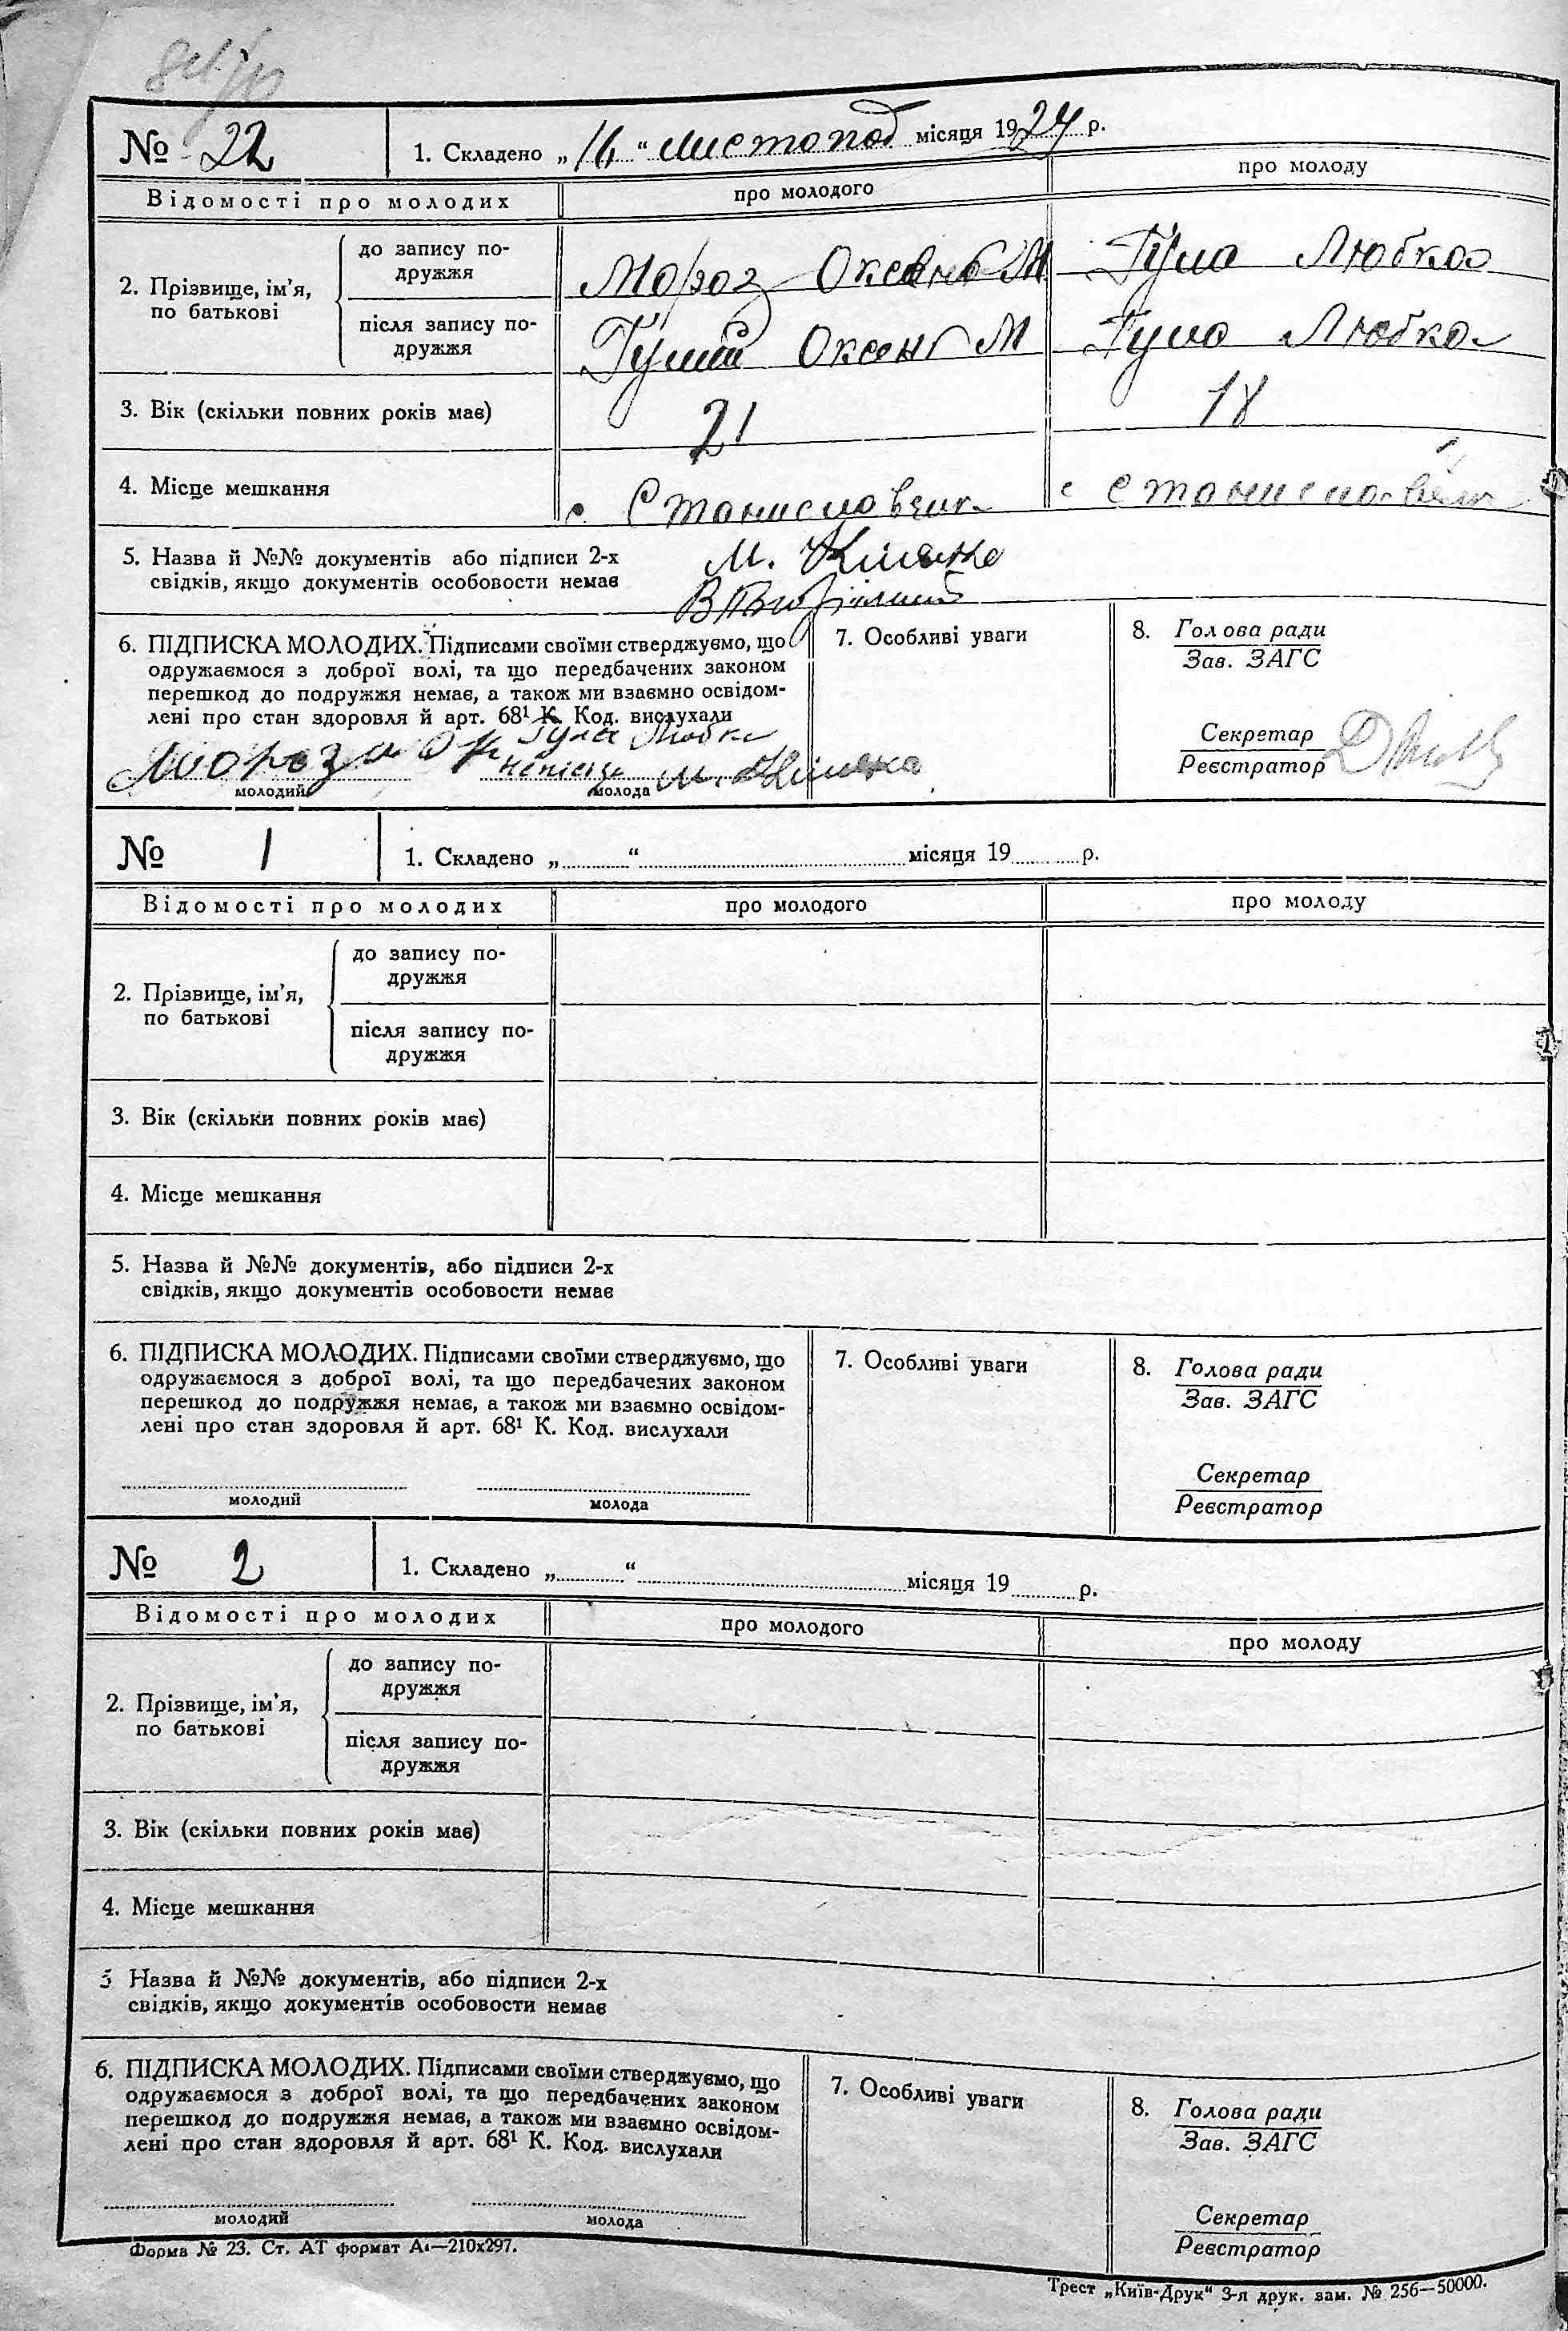 № 22
1. Складено „16“ листопад місяця 1924 р.
Відомості про молодих
про молодого
про молоду
2. Прізвище, ім’я,
по батькові
до запису по-
дружжя
Мороз Оксень М
Гула Любка
після запису по-
дружжя
Оксень М
Гула Любка
3. Вік (скільки повних років має)
21
18
4. Місце мешкання
с. Станиславчик
с Станиславчик
5. Назва й №№ документів або підписи 2-х
свідків, якщо документів особовости немає
М.
6. ПІДПИСКА МОЛОДИХ. Підписами своїми стверджуємо, що
одружаємося з доброї волі, та що передбачених законом
перешкод до подружжя немає, а також ми взаємно освідом-
лені про стан здоровля й арт. 68¹ К. Код. вислухали
Гула Любка
молодий
молода
7. Особливі уваги
8. Голова ради
Зав. ЗАГС
Секретар
Реєстратор
№ 1
1. Складено „ “ місяця 19 р.
Відомості про молодих
про молодого
про молоду
2. Прізвище, ім’я,
по батькові
до запису по-
дружжя
після запису по-
дружжя
3. Вік (скільки повних років має)
4. Місце мешкання
5. Назва й №№ документів, або підписи 2-х
свідків, якщо документів особовости немає
6. ПІДПИСКА МОЛОДИХ. Підписами своїми стверджуємо, що
одружаємося з доброї волі, та що передбачених законом
перешкод до подружжя немає, а також ми взаємно освідом-
лені про стан здоровля й арт. 68¹ К. Код. вислухали
молодий
молода
7. Особливі уваги
8. Голова ради
Зав. ЗАГС
Секретар
Реєстратор
№ 2
1. Складено „ “ місяця 19 р.
Відомості про молодих
про молодого
про молоду
2. Прізвище, ім’я,
по батькові
до запису по-
дружжя
після запису по-
дружжя
3. Вік (скільки повних років має)
4. Місце мешкання
5 Назва й №№ документів, або підписи 2-х
свідків, якщо документів особовости немає
6. ПІДПИСКА МОЛОДИХ. Підписами своїми стверджуємо, що
одружаємося з доброї волі, та що передбачених законом
перешкод до подружжя немає, а також ми взаємно освідом-
лені про стан здоровля й арт. 68¹ К. Код. вислухали
молодий
молода
7. Особливі уваги
8. Голова ради
Зав. ЗАГС
Секретар
Реєстратор
Форма № 23. Ст. АТ формат А₄—210х297.
Трест „Київ-Друк“ 3-я друк. зам. № 256—50000.